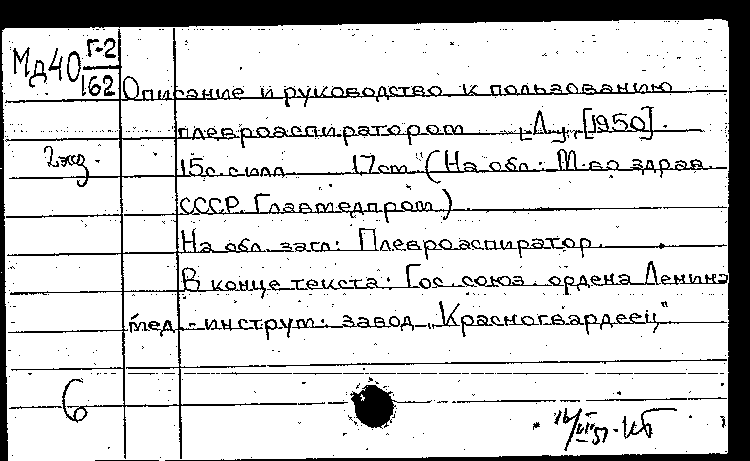 Мд40 Г-2
162
Описание и руководство к пользованию
плевроаспиратором [Л.], [1950].
2 экз.
15с. с илл. 17см. (На обл.: М-во здрав.
СССР. Главмедпром.)
На обл. загл: Плевроаспиратор.
В конце текста: Гос. союз. ордена Ленина
мед.-инструм. завод „Красногвардеец"
6
16/VI 51. КБ